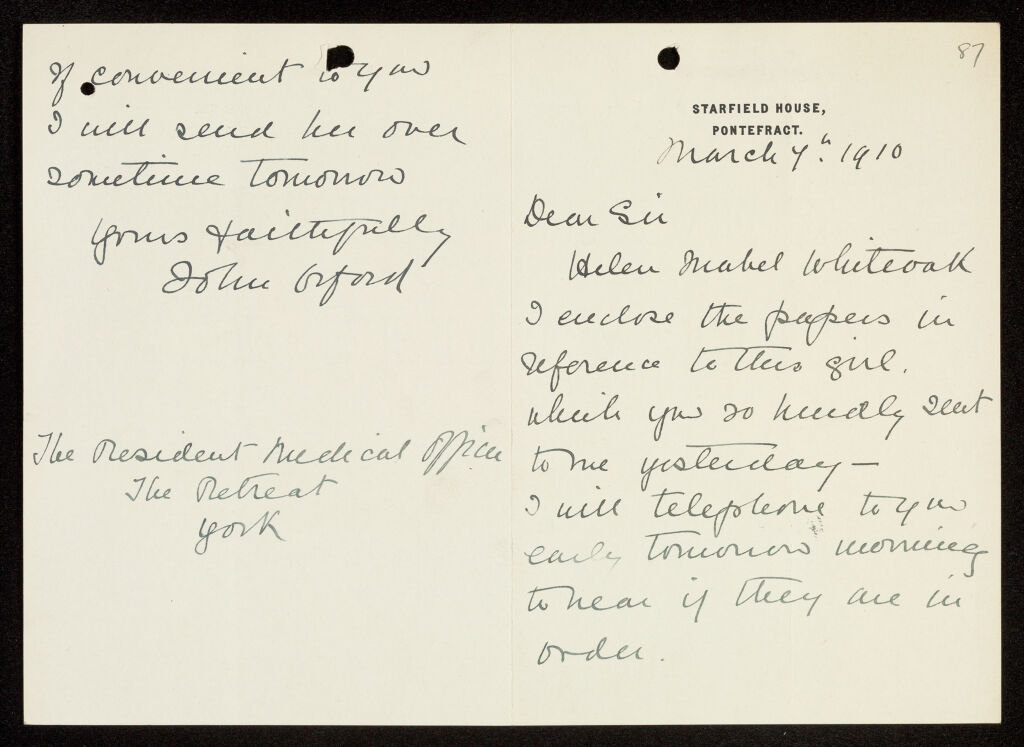 87
STARFIELD HOUSE,
PONTEFRACT.
March 7th. 1910
Dear Sir
Helen Mabel Whiteoak
I enclose the papers in
reference to this girl.
which you so kindly sent
to me yesterday —
I will telephone to you
early tomorrow morning
to hear if they are in
order.
If convenient to you
I will send her over
sometime tomorrow
Yours faithfully
John Orford
The Resident Medical Officer
The Retreat
York